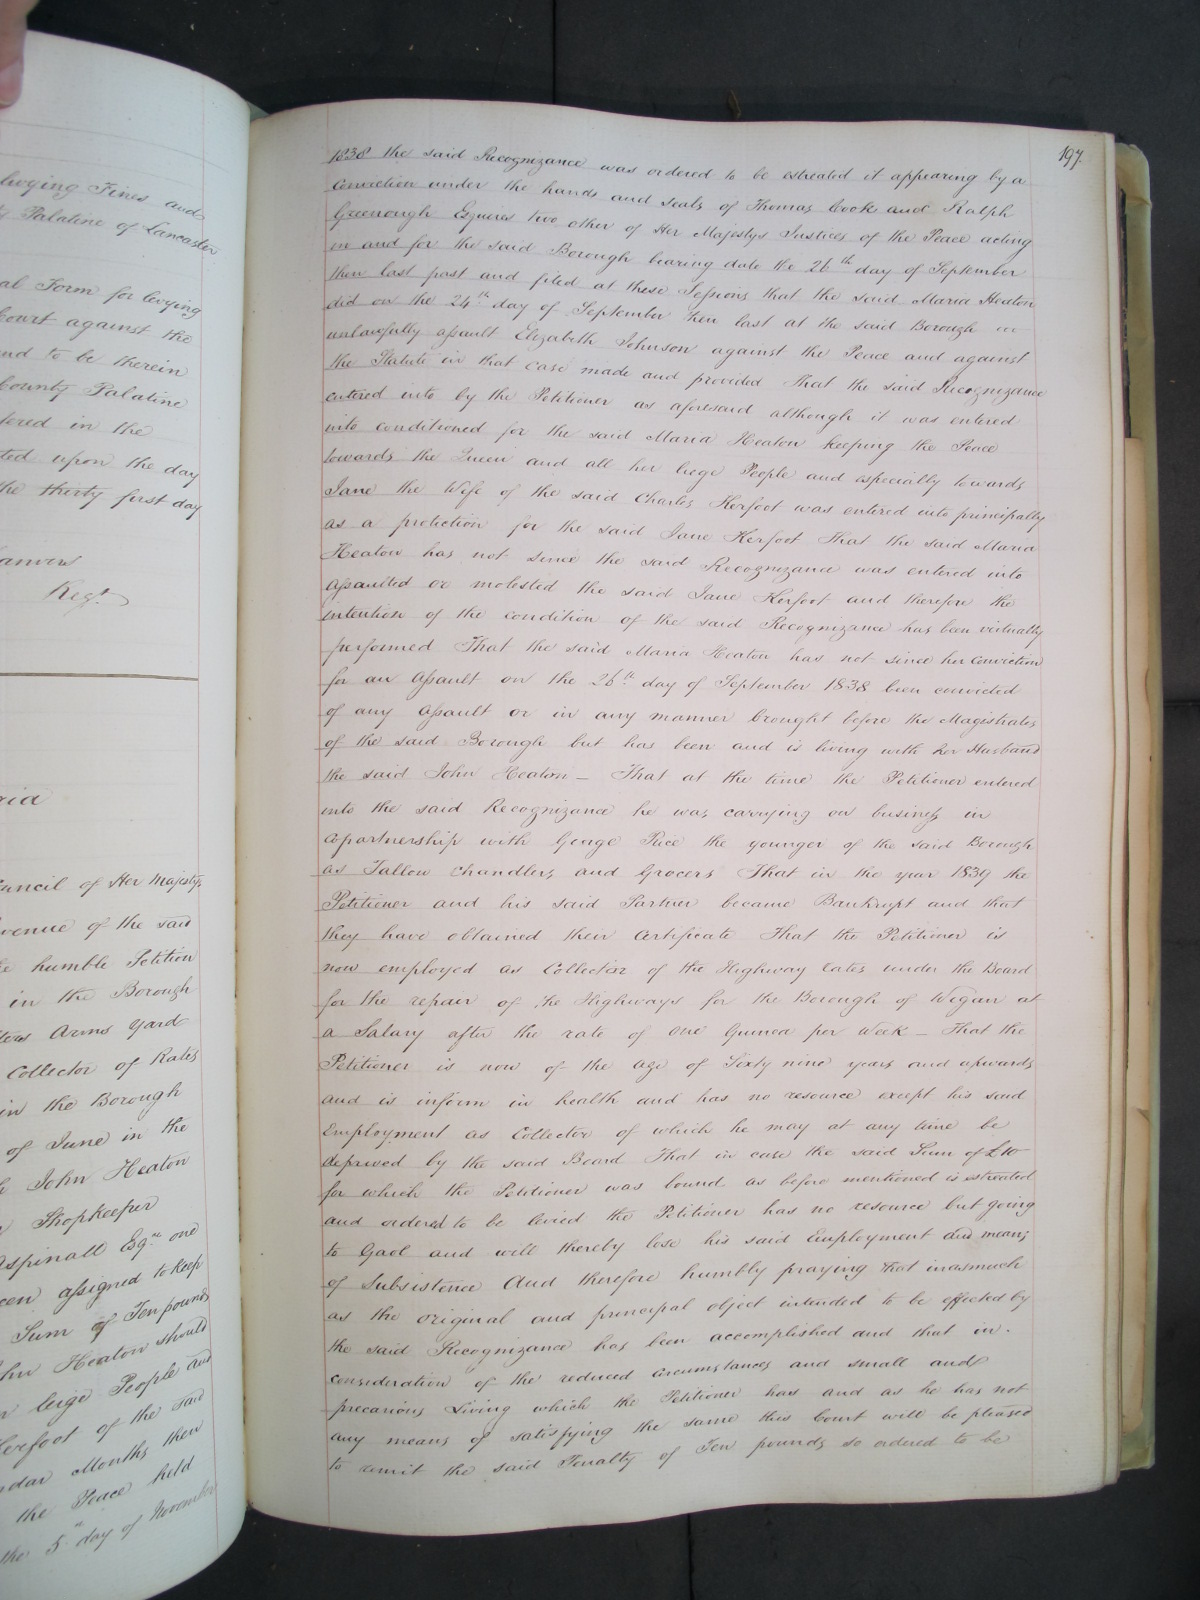 levying Fines and
Palatine of Lancaster
al Form for levying
Court against the
and to be therein
County Palatine
tered in the
ted upon the day
the thirty first day
Regr
ria
uncil of Her Majestys
venue of the said
humble Petition
in the Borough
Arms Yard
Collector of Rates
in the Borough
of June in the
John Heaton
Shopkeeper
Aspinall Esqre one
een assigned to keep
Sum of Ten pounds
hn Heaton should
liege People and
Kerfoot of the said
ndar Months then
the Peace held
the 5th day of November
197.
1838 the said Recognizance was ordered to be estreated it appearing by a
Conviction under the hands and seals of Thomas Cook and Ralph
Greenough Esquires two other of Her Majestys Justices of the Peace acting
in and for the said Borough bearing date the 26th day of September
then last past and filed at these Sessions that the said Maria Heaton
did on the 24th day of September then last at the said Borough in
unlawfully assault Elizabeth Johnson against the Peace and against
the Statute in that case made and provided That the said Recognizance
entered into by the Petitioner as aforesaid although it was entered
into conditioned for the said Maria Heaton keeping the Peace
towards the Queen and all her liege People and especially towards
Jane the Wife of the said Charles Kerfoot was entered into principally
as a protection for the said Jane Kerfoot That the said Maria
Heaton has not since the said Recognizance was entered into
assaulted or molested the said Jane Kerfoot and therefore the
intention of the condition of the said Recognizance has been virtually
performed That the said Maria Heaton has not since her conviction
for an Assault on the 26th day of September 1838 been convicted
of any Assault or in any manner brought before the Magistrates
of the said Borough but has been and is living with her Husband
the said John Heaton – That at the time the Petitioner entered
into the said Recognizance he was carrying on business in
Copartnership with George Rice the younger of the said Borough
as Tallow Chandlers and Grocers That in the year 1839 the
Petitioner and his said Partner became Bankrupt and that
they have obtained their Certificate That the Petitioner is
now employed as Collector of the Highway rates under the Board
for the repair of the Highways for the Borough of Wigan at
a Salary after the rate of one Guinea per Week – That the
Petitioner is now of the age of Sixty nine years and upwards
and is infirm in health and has no resource except his said
Employment as Collector of which he may at any time be
deprived by the said Board That in case the said Sum of £10
for which the Petitioner was bound as before mentioned is estreated
and ordered to be levied the Petitioner has no resource but going
to Gaol and will thereby lose his said Employment and means
of Subsistence And therefore humbly praying that inasmuch
as the original and principal object intended to be effected by
the said Recognizance has been accomplished and that in
consideration of the reduced circumstances and small and
precarious Living which the Petitioner has and as he has not
any means of satisfying the same this Court will be pleased
to remit the said Penalty of Ten pounds so ordered to be